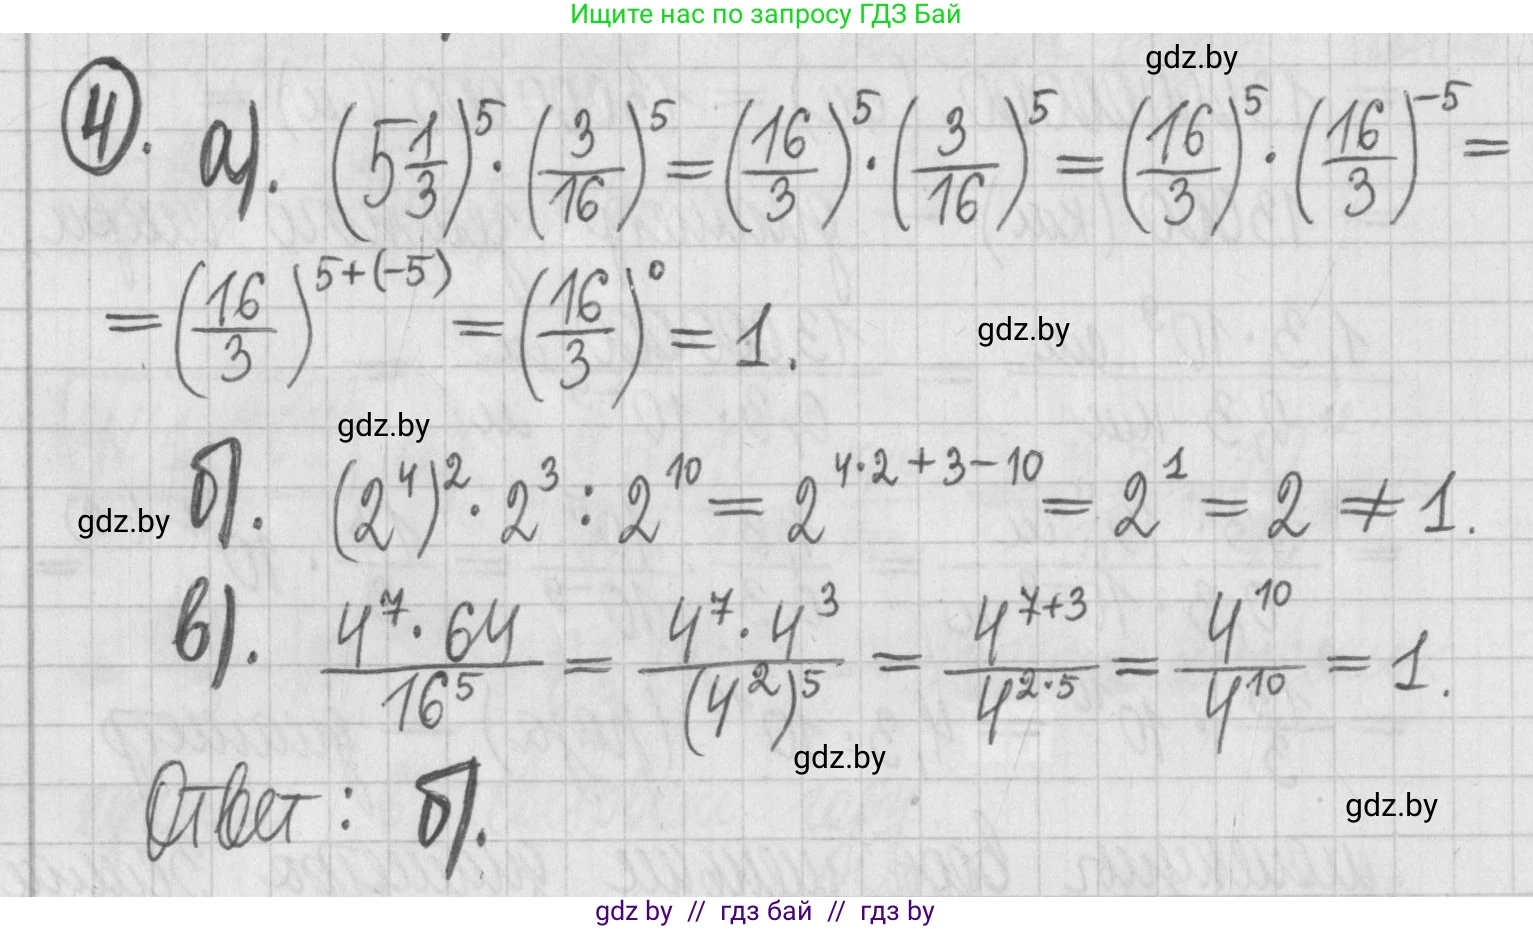 Ищите нас по запросу ГДЗ Бай
gdz.by
4. а). (5 1/3)^5 · (3/16)^5 = (16/3)^5 · (3/16)^5 = (16/3)^5 · (16/3)^-5 =
= (16/3)^5+(-5) = (16/3)^0 = 1.
gdz.by
gdz.by
б). (2^4)^2 · 2^3 : 2^10 = 2^4·2+3-10 = 2^1 = 2 ≠ 1.
gdz.by
в). 4^7 · 64 / 16^5 = 4^7 · 4^3 / (4^2)^5 = 4^7+3 / 4^2·5 = 4^10 / 4^10 = 1.
gdz.by
Ответ: б).
gdz.by
gdz by // гдз бай // гдз by